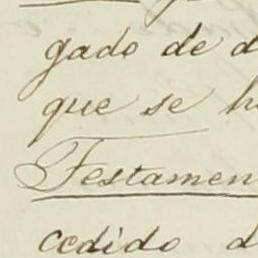 gado de d
que se h
Testamen
cedido d